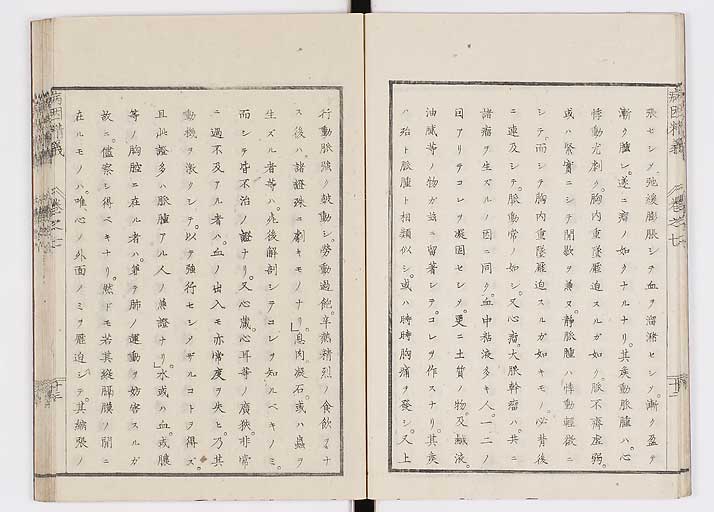 張セシメ弛緩膨脹シテ血ヲ溜瀦セシメ。漸ク盈テ
漸ク腫レ。遂ニ瘤ノ如クナルナリ。其疾動脈腫ハ。心
悸動尤劇ク。胸内重墜壓迫スルガ如ク。脈不齊虚弱。
或ハ緊實ニシテ間歇ヲ兼ヌ。静脈腫ハ悸動軽微ニ
シテ。而シテ胸内重墜壓迫スルガ如キモノ。必背後
ニ連及シテ。脈動常ノ如シ。又心瘤。大脈幹瘤ハ。共ニ
諸瘤ヲ生ズルノ因ニ同ク。血中粘液多キ人。一二ノ
因アリテコレヲ凝固セシメ。更ニ土質ノ物。及鹹液。
油膩等ノ物ガ茲ニ留著シテ。コレヲ作スナリ。其疾
ハ殆ト脈腫ト相類似シ。或ハ時時胸痛ヲ發シ。又上
病因精義 巻之七 十二
行動脈強ク皷動シ。勞動過飽。辛熱精烈ノ食飲ヲナ
ス後ハ。諸證殊ニ劇キモノナリ」息肉。凝石。或ハ蟲ヲ
生ズル者等ハ。死後解剖シテコレヲ知ルベキノミ。
而シテ皆不治ノ證ナリ。又心藏。心耳等ノ廣狹。非常
ニ過不及アル者ハ。血ノ出入モ亦常度ヲ失ヒ。乃其
動機ヲ激クシテ。以テ強行セシメザルコトヲ得ズ。
且此證多ハ脈腫アル人ノ兼證ナリ」水或ハ血。或膿
等ノ胸腔ニ在ル者ハ。單ヲ肺ノ運動ヲ妨害スルガ
故ニ。儘察シ得ベキナリ。然ドモ若其縦膈膜ノ間ニ
在ルモノハ。唯心ノ外面ノミヲ壓迫シテ。其縮張ノ
病因精義 巻之七 十三